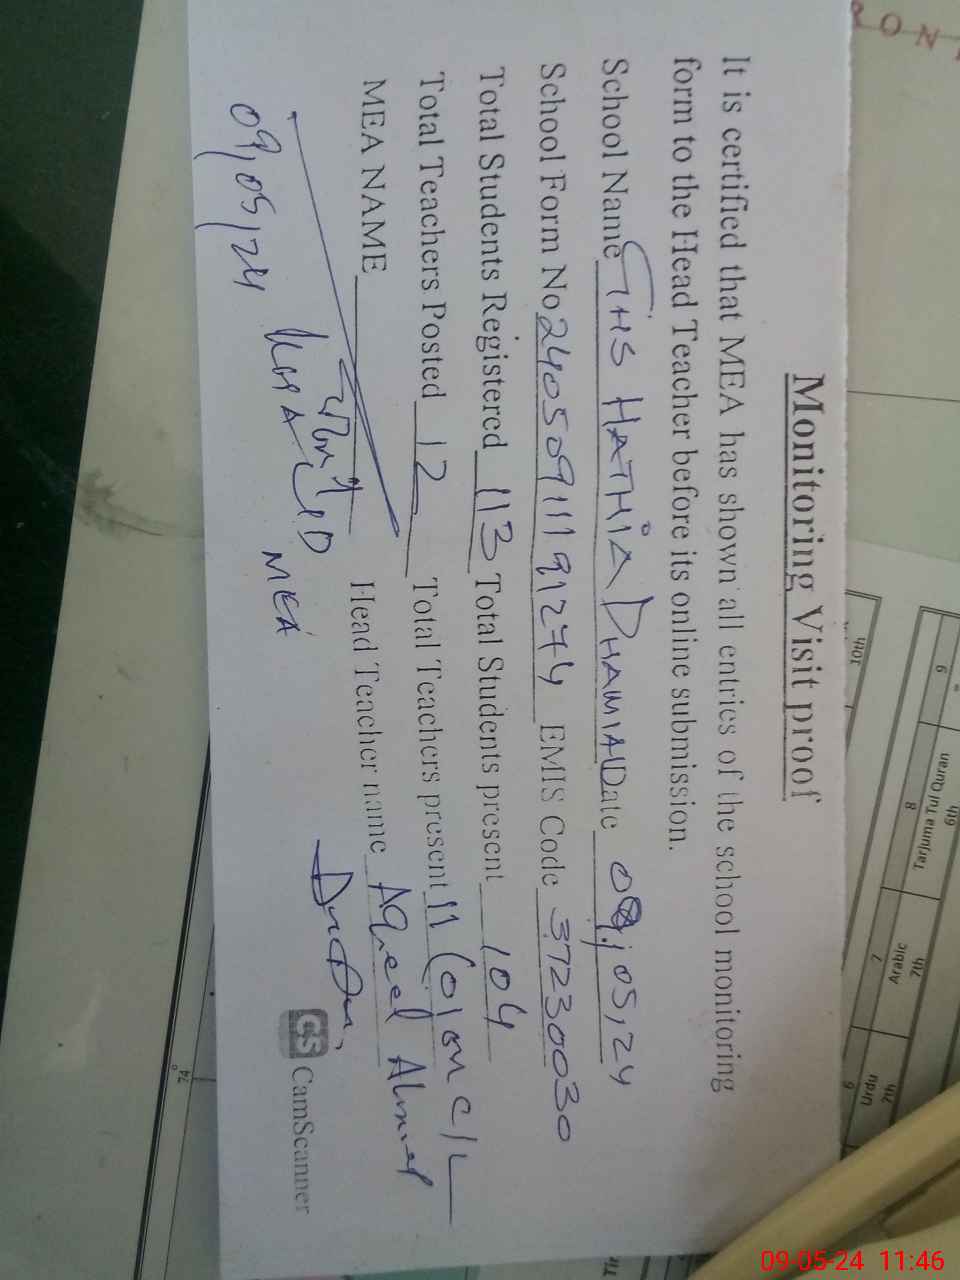 Monitoring Visit proof
It is certified that MEA has shown all entries of the school monitoring
form to the Head Teacher before its online submission.
School Name GHS HATHIA DHAMIAL Date 09,05,24
School Form No 24050911191274 EMIS Code 37230030
Total Students Registered 113 Total Students present 104
Total Teachers Posted 12 Total Teachers present 11 (01 on C/L
MEA NAME Head Teacher name Aqeel Ahmed
MEA
09,05,24
CS CamScanner
RON
10th
6
Tarjuma Tul Quran
6th
8
Arabic
7th
7
Urdu
7th
6
09-05-24 11:46